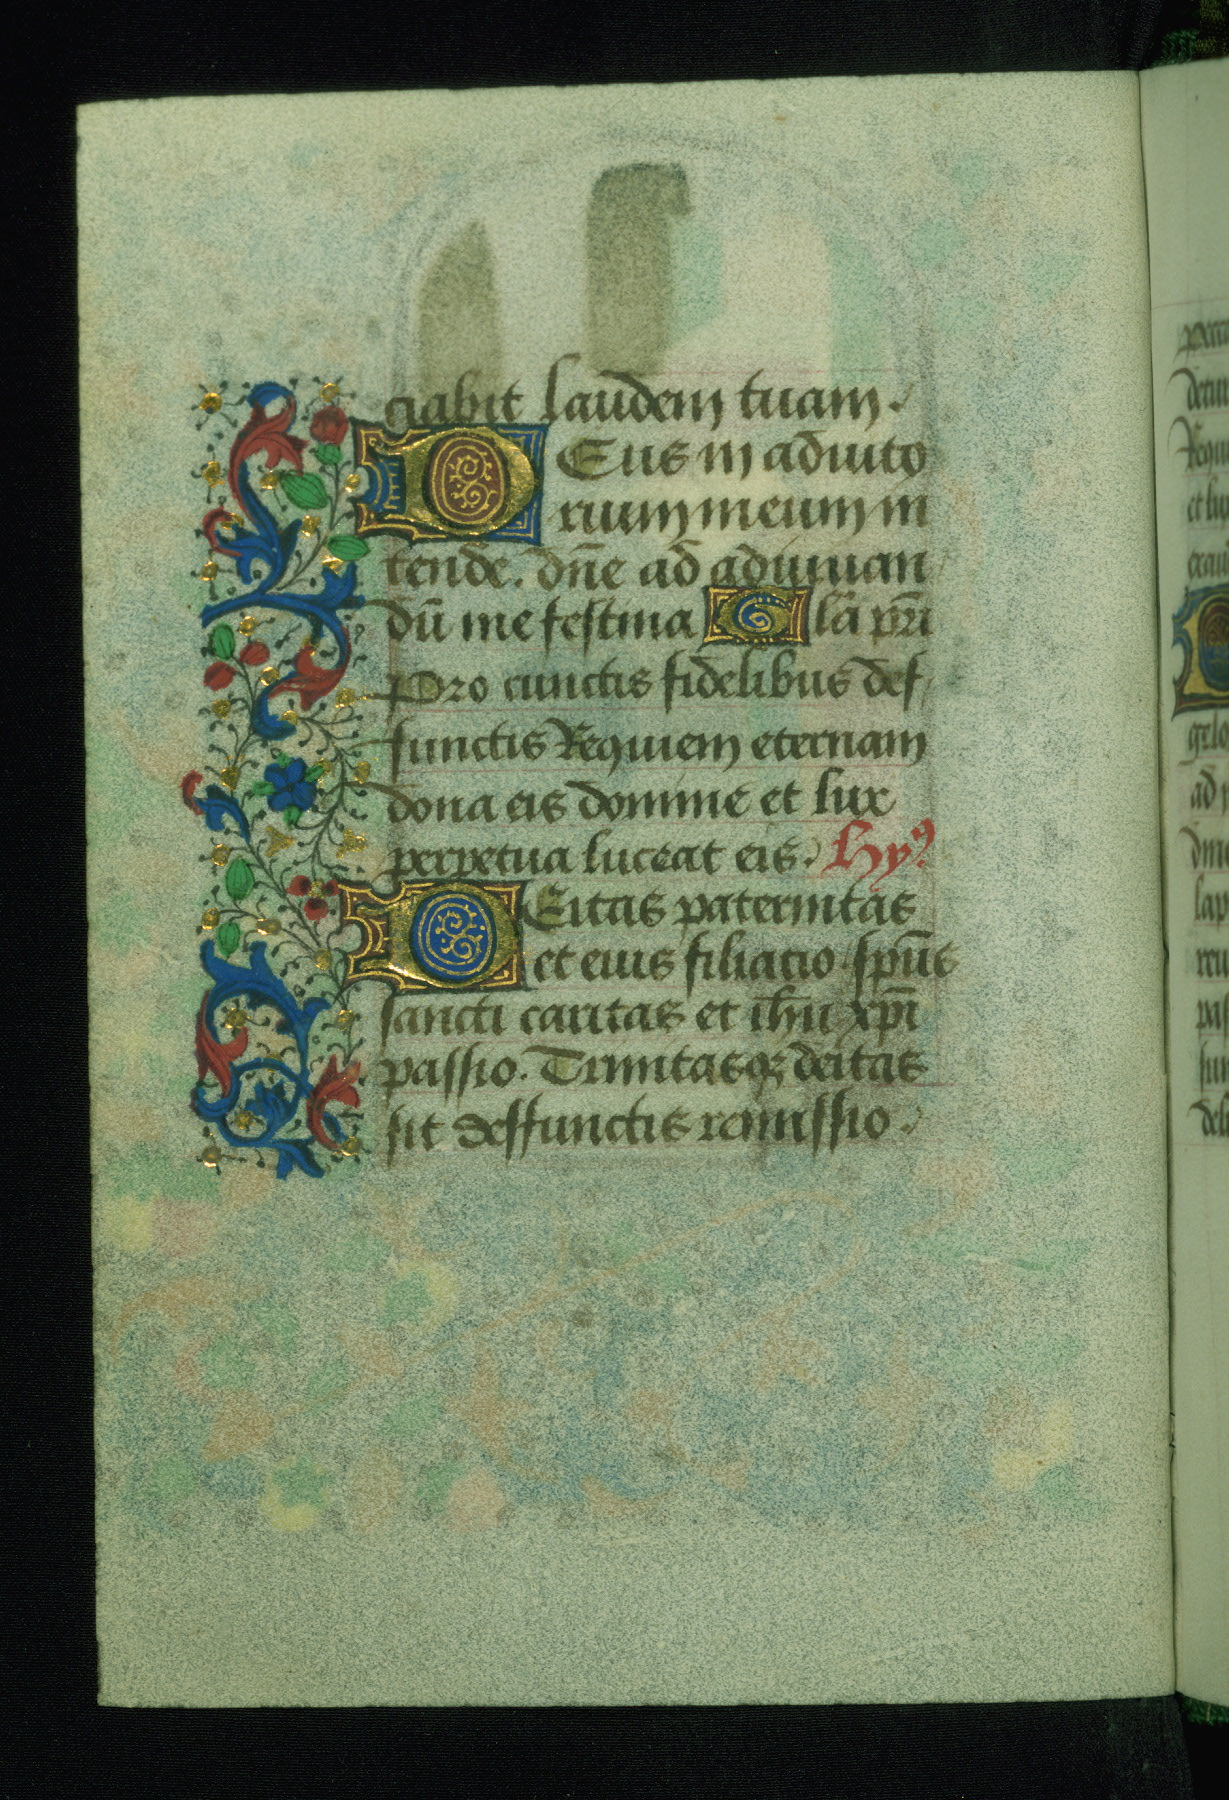 ciabit laudem tuam.
Deus in adiuto
rium meum in
tende. dn̄e ad adiuuan
dū me festina Glā pr̄i
Pro cunctis fidelibus def
functis Requiem eternam
dona eis domine et lux
perpetua luceat eis. Hyꝰ
Deitas paternitas
et eius filiatio spūs
sancti caritas et ih̄u xp̄i
passio. Trinitasqꝫ deitas
sit deffunctis remissio.